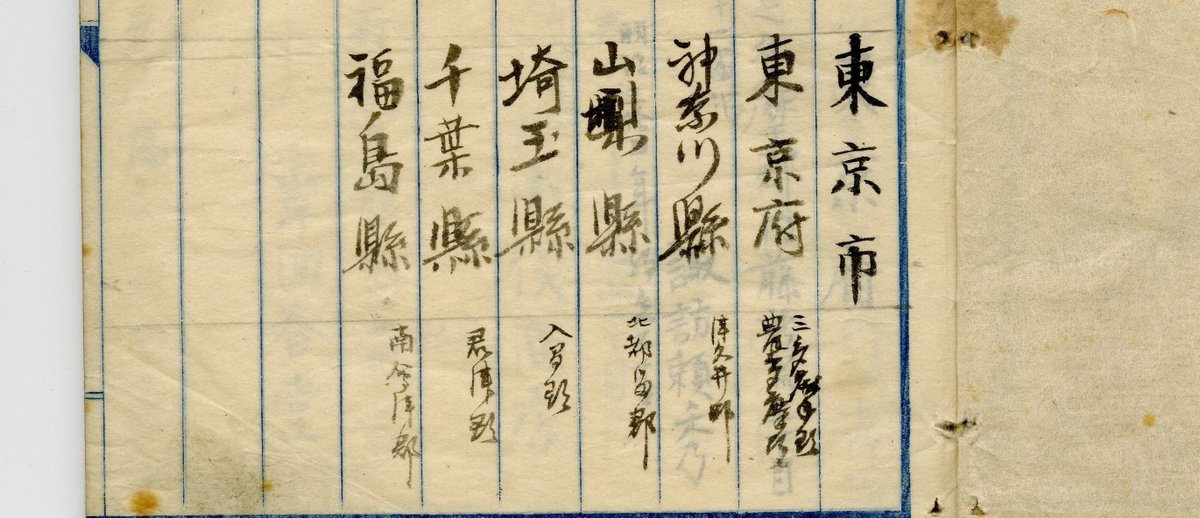 東京市
東京府
三多摩郡
農多摩郡
神奈川縣 津久井郡
山梨縣 北都留郡
埼玉縣 入間郡
千葉縣 君津郡
福島縣 南会津郡